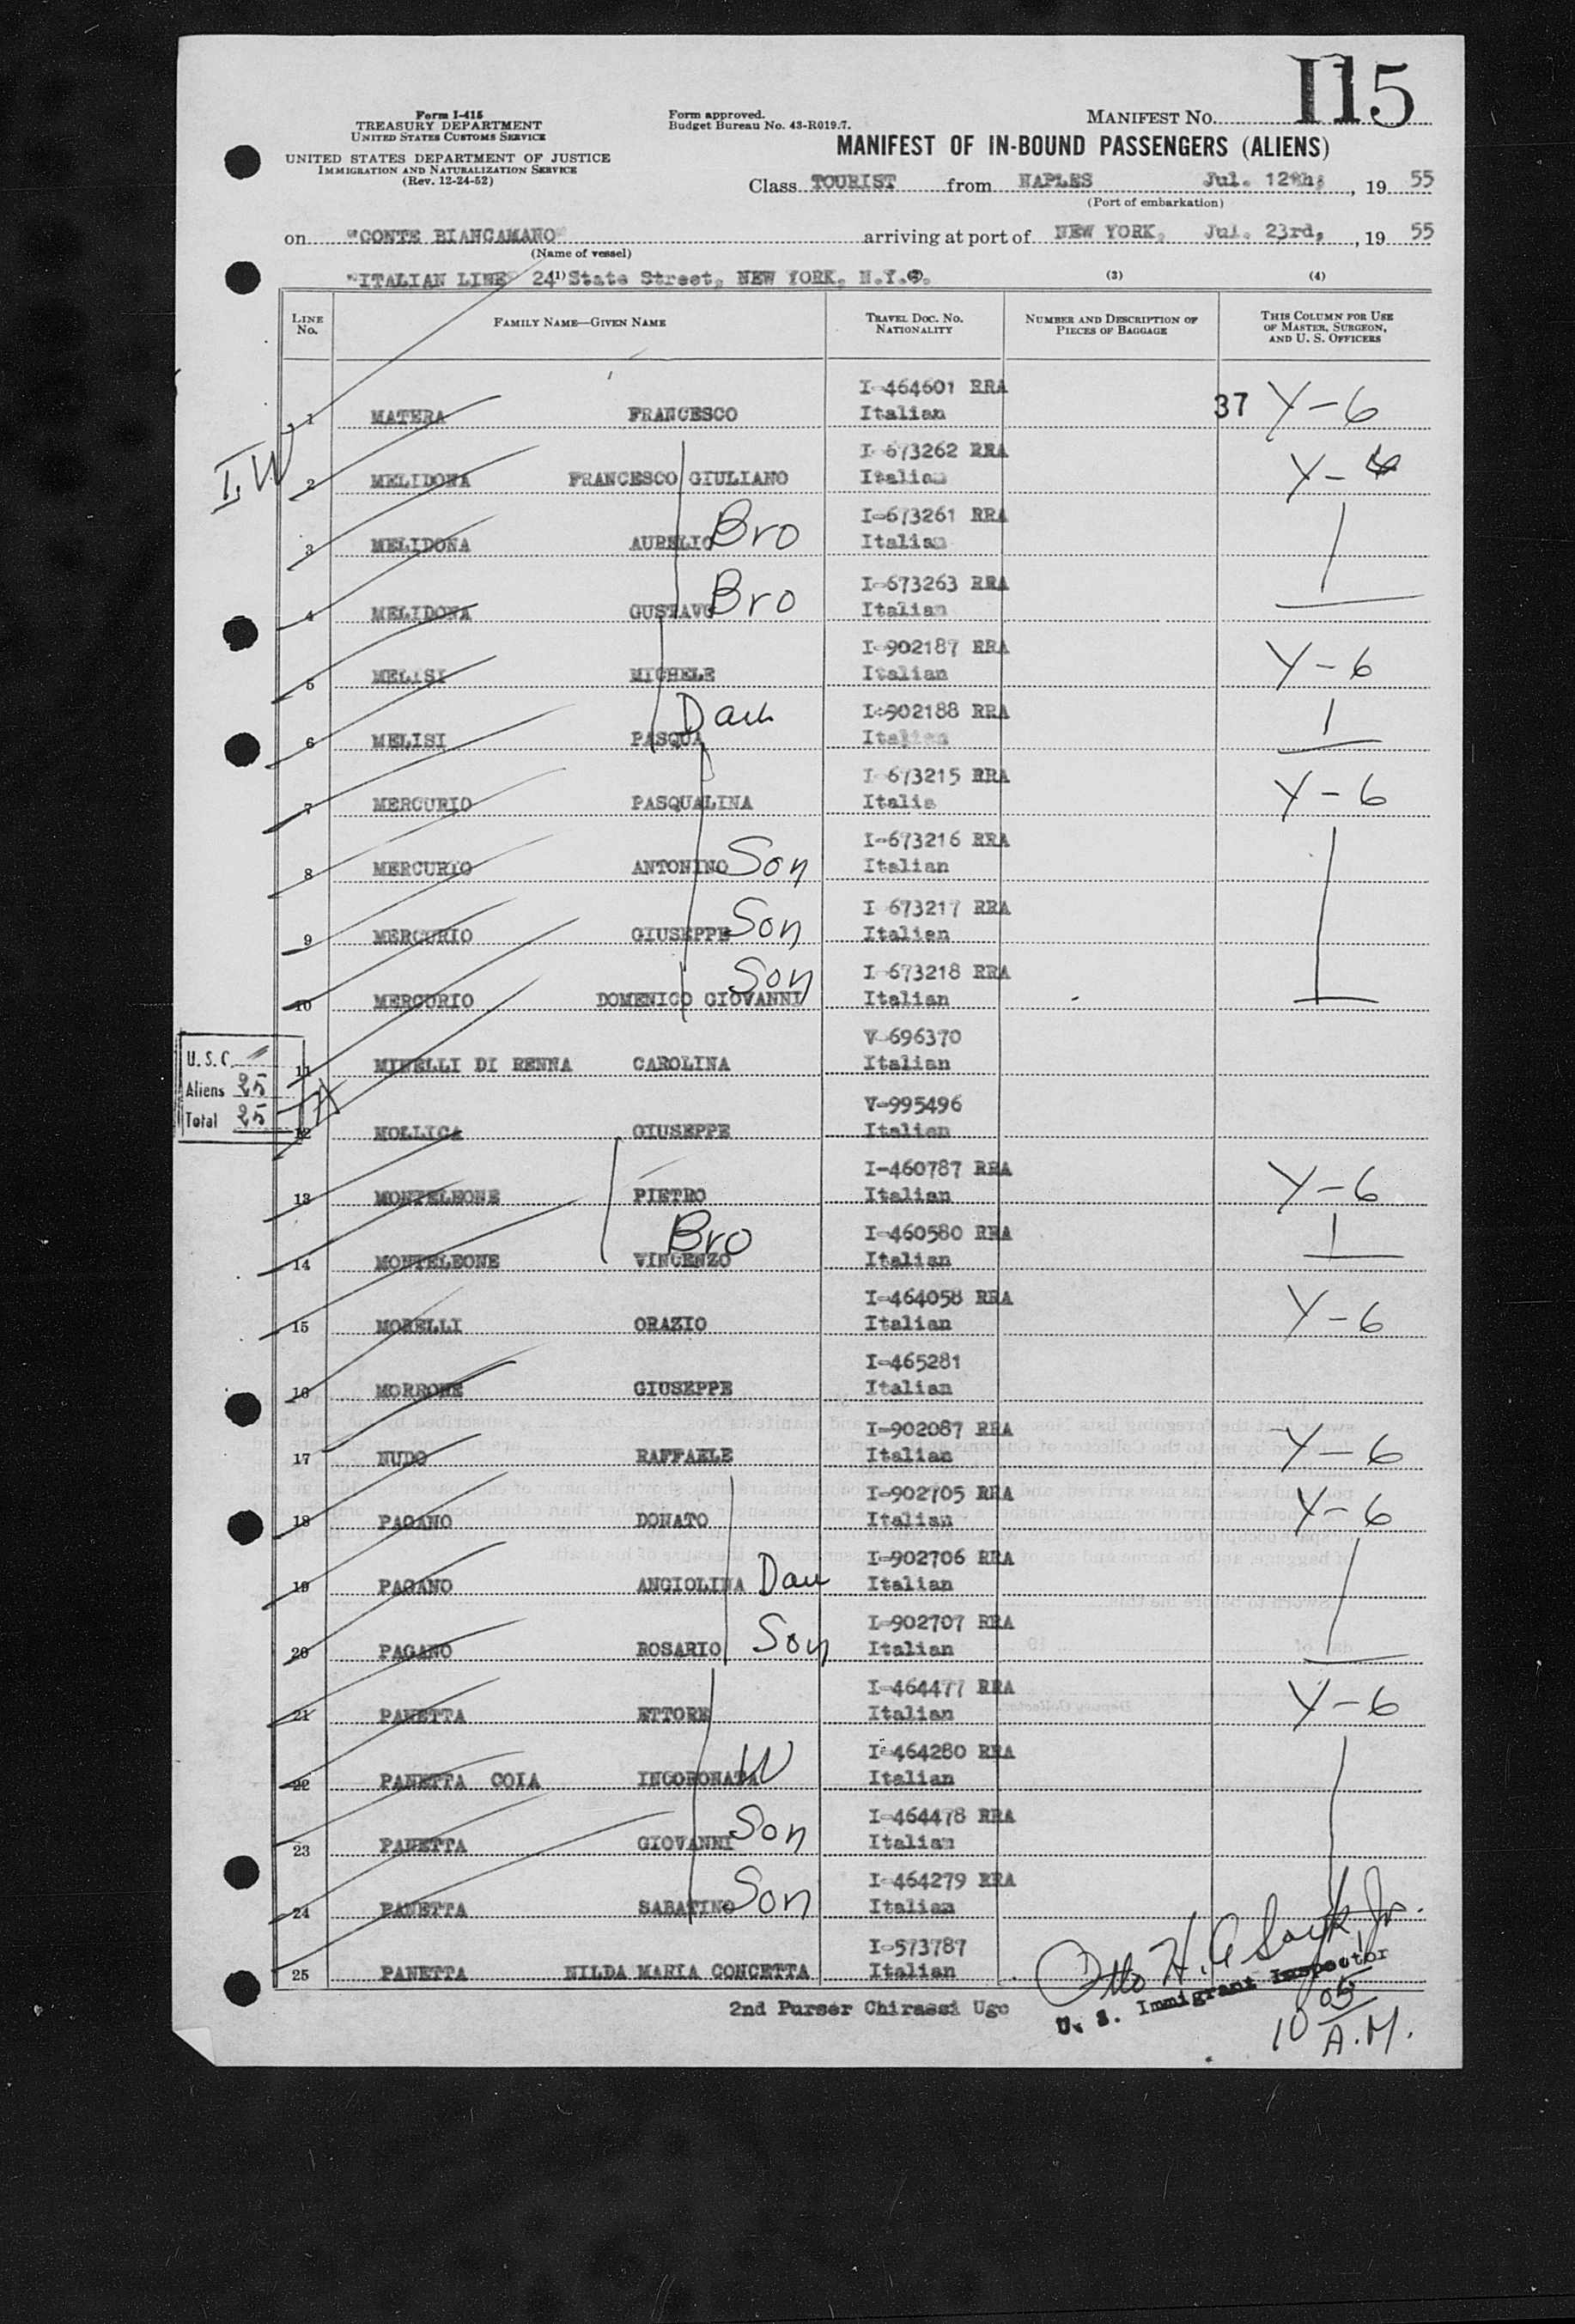 I15
Form I-415
TREASURY DEPARTMENT
UNITED STATES CUSTOMS SERVICE
UNITED STATES DEPARTMENT OF JUSTICE
IMMIGRATION AND NATURALIZATION SERVICE
(Rev. 12-24-52)
Form approved.
Budget Bureau No. 43-R019.7.
MANIFEST NO.
MANIFEST OF IN-BOUND PASSENGERS (ALIENS)
Class TOURIST from NAPLES Jul. 12th; , 19 55
(Port of embarkation)
on "CONTE BIANCAMANO" arriving at port of NEW YORK, Jul. 23rd, , 19 55
(Name of vessel)
"ITALIAN LINE" 24 (1) State Street, NEW YORK, N.Y. (3) (4)
LINE No. FAMILY NAME—GIVEN NAME TRAVEL DOC. NO. NATIONALITY NUMBER AND DESCRIPTION OF PIECES OF BAGGAGE THIS COLUMN FOR USE OF MASTER, SURGEON, AND U. S. OFFICERS
I-464601 RRA
1 MATERA FRANCESCO Italian 37 Y-6
I.W
I-673262 RRA
2 MELIDONA FRANCESCO GIULIANO Italian Y-
I-673261 RRA
3 MELIDONA AURELIO Bro Italian
I-673263 RRA
4 MELIDONA GUSTAVO Bro Italian
I-902187 RRA
5 MELISI MICHELE Italian Y-6
I-902188 RRA
6 MELISI PASQUA Dau Italian
I-673215 RRA
7 MERCURIO PASQUALINA Italia Y-6
I-673216 RRA
8 MERCURIO ANTONINO Son Italian
I 673217 RRA
9 MERCURIO GIUSEPPE Son Italian
I-673218 RRA
10 MERCURIO DOMENICO GIOVANNI Son Italian
V-696370
11 MINELLI DI RENNA CAROLINA Italian
U. S. C.
Aliens 25
Total 25
V-995496
12 MOLLICA GIUSEPPE Italian
I-460787 RRA
13 MONTELEONE PIETRO Italian Y-6
I-460580 RRA
14 MONTELEONE VINCENZO Bro Italian
I-464058 RRA
15 MORELLI ORAZIO Italian Y-6
I-465281
16 MORRONE GIUSEPPE Italian
I-902087 RRA
17 NUDO RAFFAELE Italian Y-6
I-902705 RRA
18 PAGANO DONATO Italian Y-6
I-902706 RRA
19 PAGANO ANGIOLINA Dau Italian
I-902707 RRA
20 PAGANO ROSARIO Son Italian
I-464477 RRA
21 PANETTA ETTORE Italian Y-6
I-464280 RRA
22 PANETTA COIA INCORONATA W Italian
I-464478 RRA
23 PANETTA GIOVANNI Son Italian
I-464279 RRA
24 PANETTA SABATINO Son Italian
I-573787
25 PANETTA NILDA MARIA CONCETTA Italian
2nd Purser Chirassi Ugo
Otto H. Jr.
U. S. Immigrant Inspector
10 05 A.M.